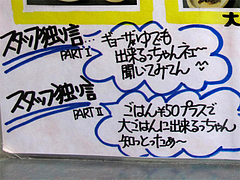 大
スタッフ独り言…
PART I
ギョーザは ゆでも
出来るっちゃんネェ〜
聞いてみてん
スタッフ独り言
PART II
ごはん¥50プラスで
大ごはんに出来るっちゃん
知っとったぁ〜